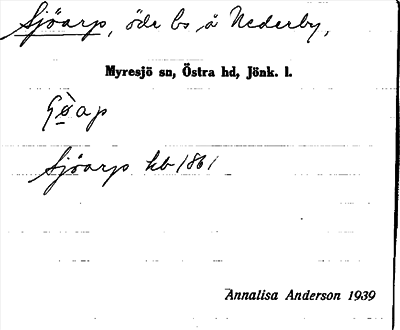 Sjöarp, öde bs å Nederby,
Myresjö sn, Östra hd, Jönk. l.
Sjöarp kb 1861
Annalisa Anderson 1939